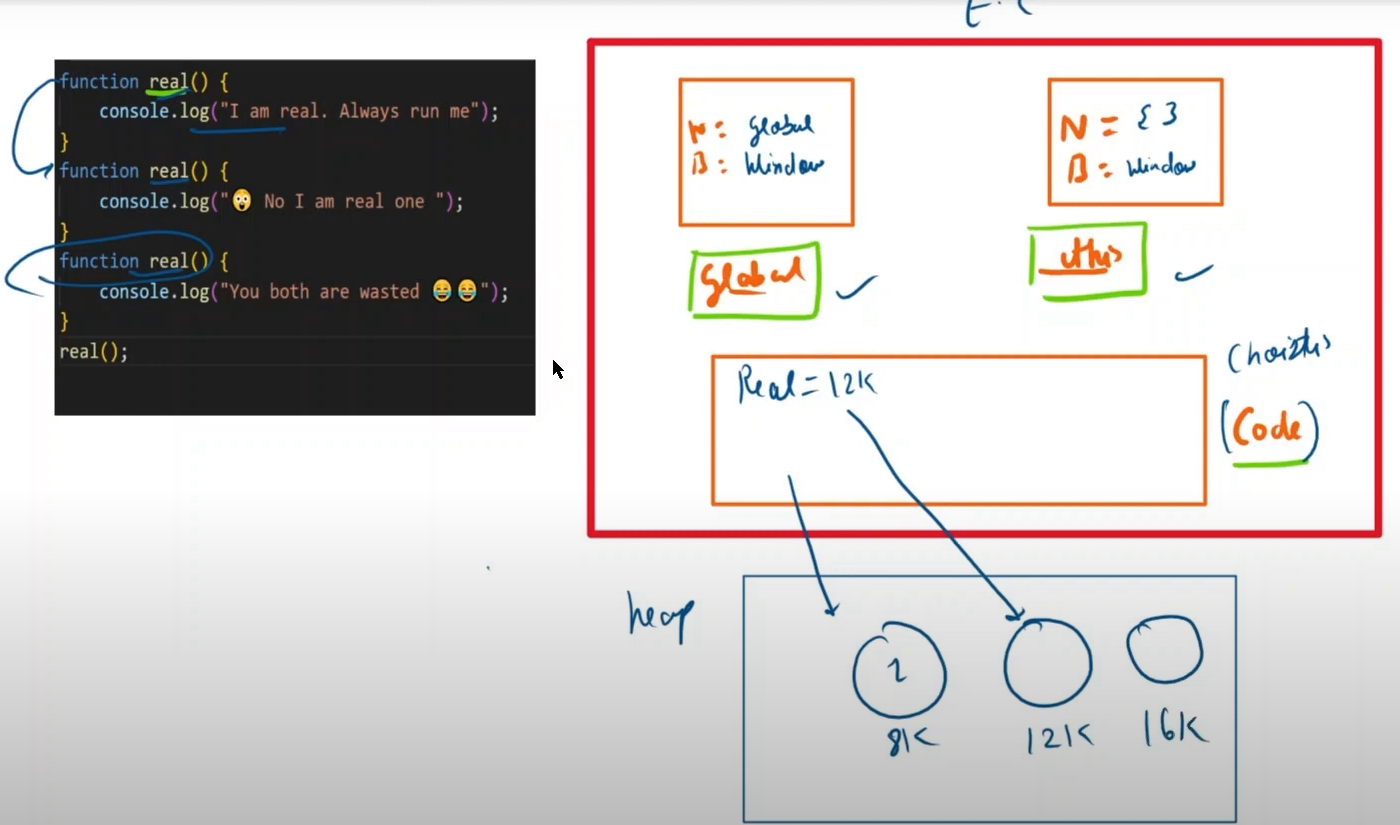 E.C
function real() {
console.log("I am real. Always run me");
}
function real() {
console.log("😲 No I am real one ");
}
function real() {
console.log("You both are wasted 😂😂");
}
real();
N: global
B: Window
N = { }
B: Window
Global
this
Real = 12K
(Code)
heap
1
8K
12K
16K